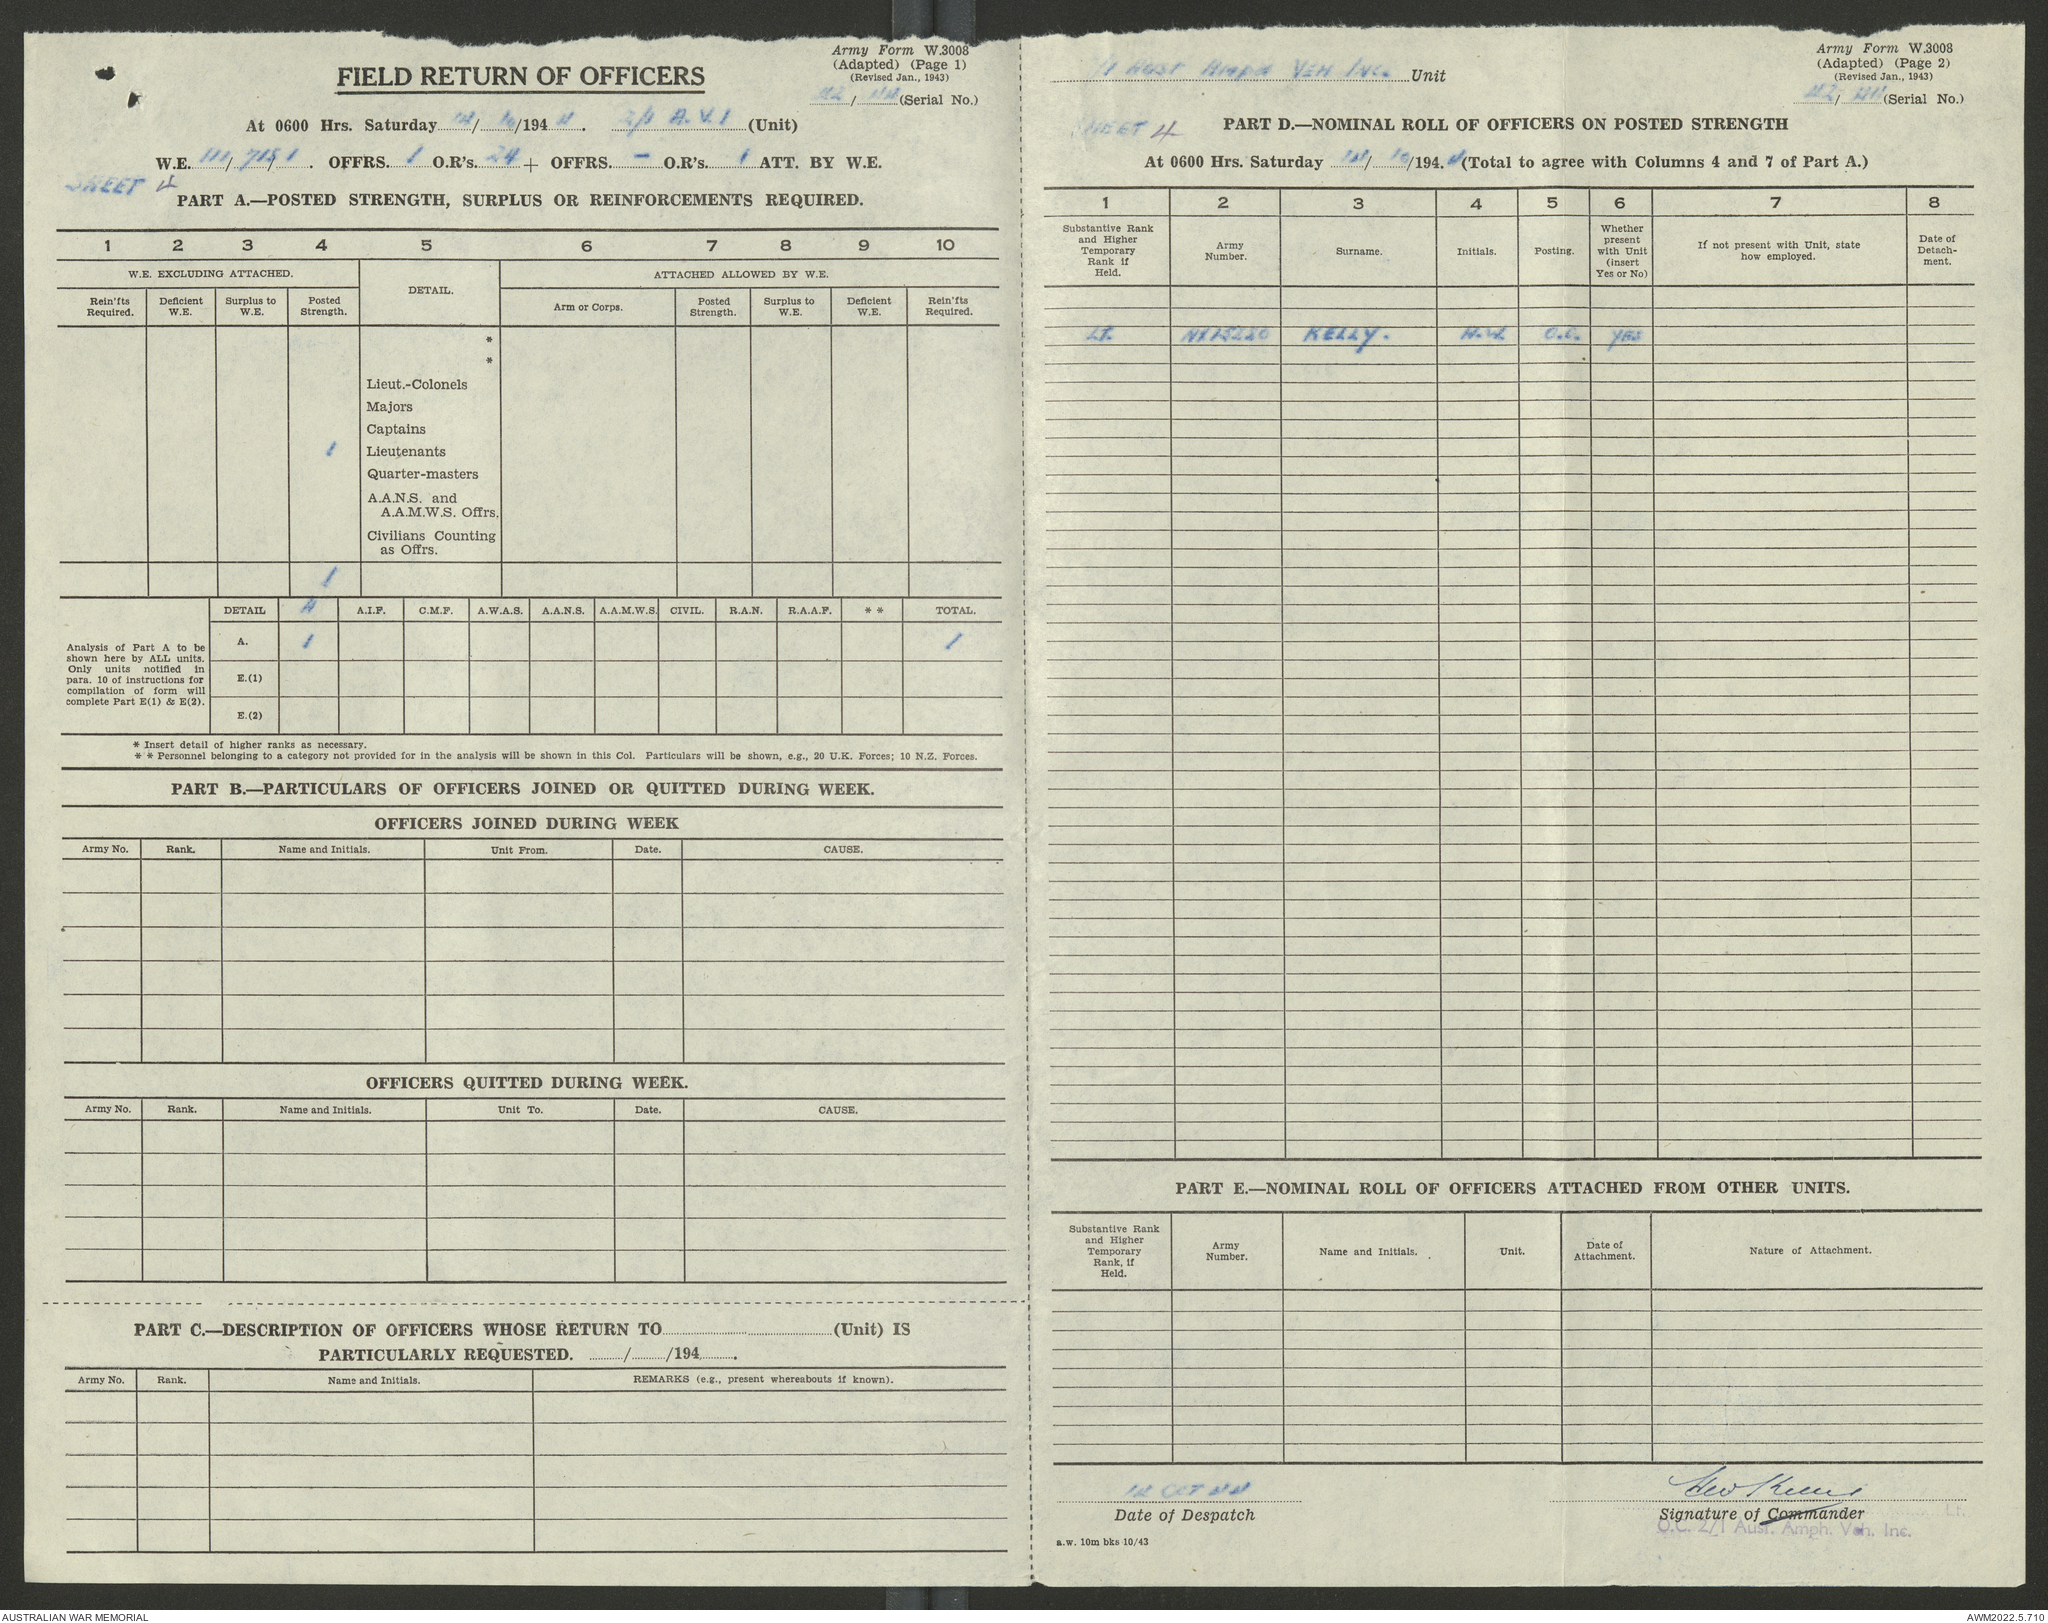 Army Form W.3008
(Adapted) (Page 1)
(Revised Jan., 1943)
FIELD RETURN OF OFFICERS
42/ 44 (Serial No.)
At 0600 Hrs. Saturday 14/ 10 /194 4. 2/1 A.V.I (Unit)
W.E. 111/ 715/ 1. OFFRS. 1 O.R's. 24 + OFFRS. – O.R's. 1 ATT. BY W.E.
SHEET 4
PART A.—POSTED STRENGTH, SURPLUS OR REINFORCEMENTS REQUIRED.
1 2 3 4 5 6 7 8 9 10
W.E. EXCLUDING ATTACHED. DETAIL. ATTACHED ALLOWED BY W.E.
Rein'fts Required. Deficient W.E. Surplus to W.E. Posted Strength. Arm or Corps. Posted Strength. Surplus to W.E. Deficient W.E. Rein'fts Required.
*
*
Lieut.-Colonels
Majors
Captains
1 Lieutenants
Quarter-masters
A.A.N.S. and
A.A.M.W.S. Offrs.
Civilians Counting
as Offrs.
1
DETAIL A.I.F. C.M.F. A.W.A.S. A.A.N.S. A.A.M.W.S. CIVIL. R.A.N. R.A.A.F. * * TOTAL.
Analysis of Part A to be
shown here by ALL units.
Only units notified in
para. 10 of instructions for
compilation of form will
complete Part E(1) & E(2).
A. 1 1
E.(1)
E.(2)
* Insert detail of higher ranks as necessary.
* * Personnel belonging to a category not provided for in the analysis will be shown in this Col. Particulars will be shown, e.g., 20 U.K. Forces; 10 N.Z. Forces.
PART B.—PARTICULARS OF OFFICERS JOINED OR QUITTED DURING WEEK.
OFFICERS JOINED DURING WEEK
Army No. Rank. Name and Initials. Unit From. Date. CAUSE.
OFFICERS QUITTED DURING WEEK.
Army No. Rank. Name and Initials. Unit To. Date. CAUSE.
PART C.—DESCRIPTION OF OFFICERS WHOSE RETURN TO (Unit) IS
PARTICULARLY REQUESTED. / /194 .
Army No. Rank. Name and Initials. REMARKS (e.g., present whereabouts if known).
Army Form W.3008
(Adapted) (Page 2)
(Revised Jan., 1943)
/1 Aust Amph Veh Inc. Unit
42/ 44 (Serial No.)
SHEET 4
PART D.—NOMINAL ROLL OF OFFICERS ON POSTED STRENGTH
At 0600 Hrs. Saturday 14/ 10 /194. 4 (Total to agree with Columns 4 and 7 of Part A.)
1 2 3 4 5 6 7 8
Substantive Rank and Higher Temporary Rank if Held. Army Number. Surname. Initials. Posting. Whether present with Unit (insert Yes or No) If not present with Unit, state how employed. Date of Detach- ment.
LT. KELLY. H.W. O.C. YES
PART E.—NOMINAL ROLL OF OFFICERS ATTACHED FROM OTHER UNITS.
Substantive Rank and Higher Temporary Rank, if Held. Army Number. Name and Initials. Unit. Date of Attachment. Nature of Attachment.
14 OCT 44
Date of Despatch
Signature of Commander
Lt.
O.C. 2/1 Aust. Amph. Veh. Inc.
a.w. 10m bks 10/43
AUSTRALIAN WAR MEMORIAL
AWM2022.5.710